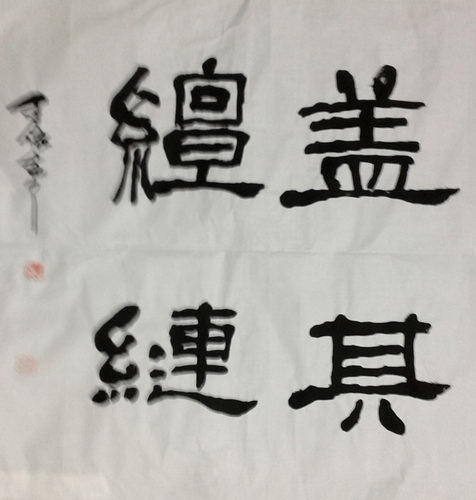 盖其
繵縺